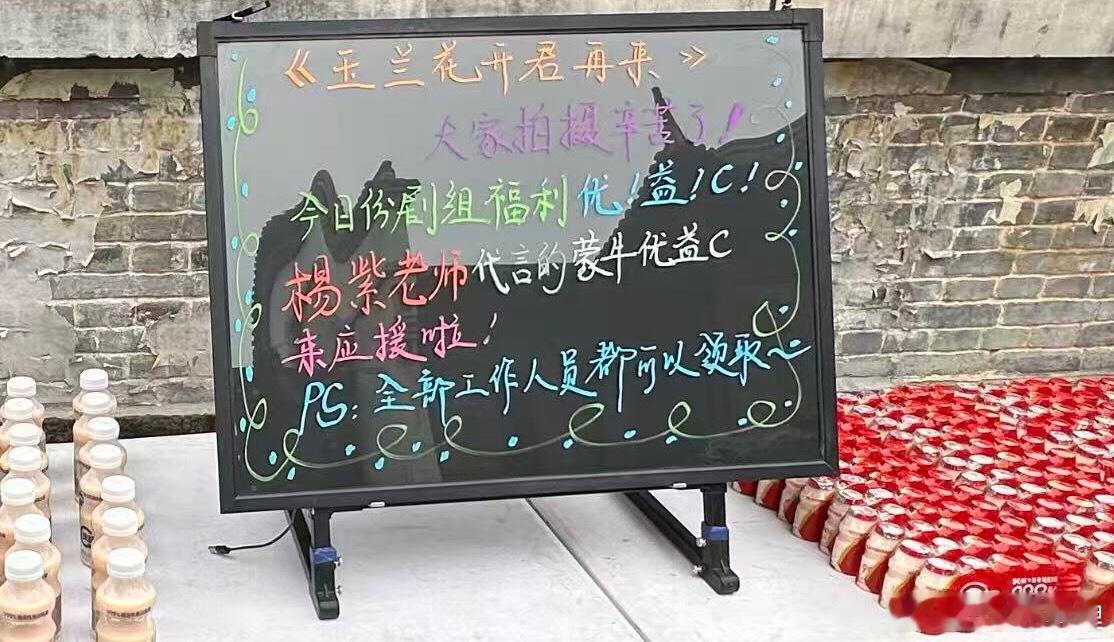 《玉兰花开君再来》
大家拍摄辛苦了！
今日份剧组福利优！益！C！
杨紫老师代言的蒙牛优益C
来应援啦！
PS：全部工作人员都可以领取~